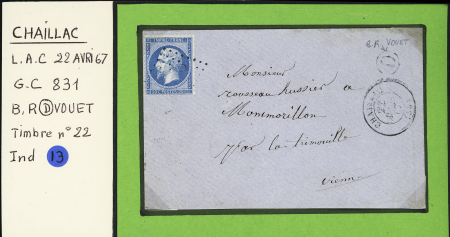 CHAILLAC
L.A.C 22 AVRI 67
G.C 831
B.R Ⓓ VOUET
Timbre n° 22
Ind 13
B.R VOUET
D
EMPIRE FRANC
Monsieur
rousseau hussier a
Montmorillon
par la trimouille
vienne